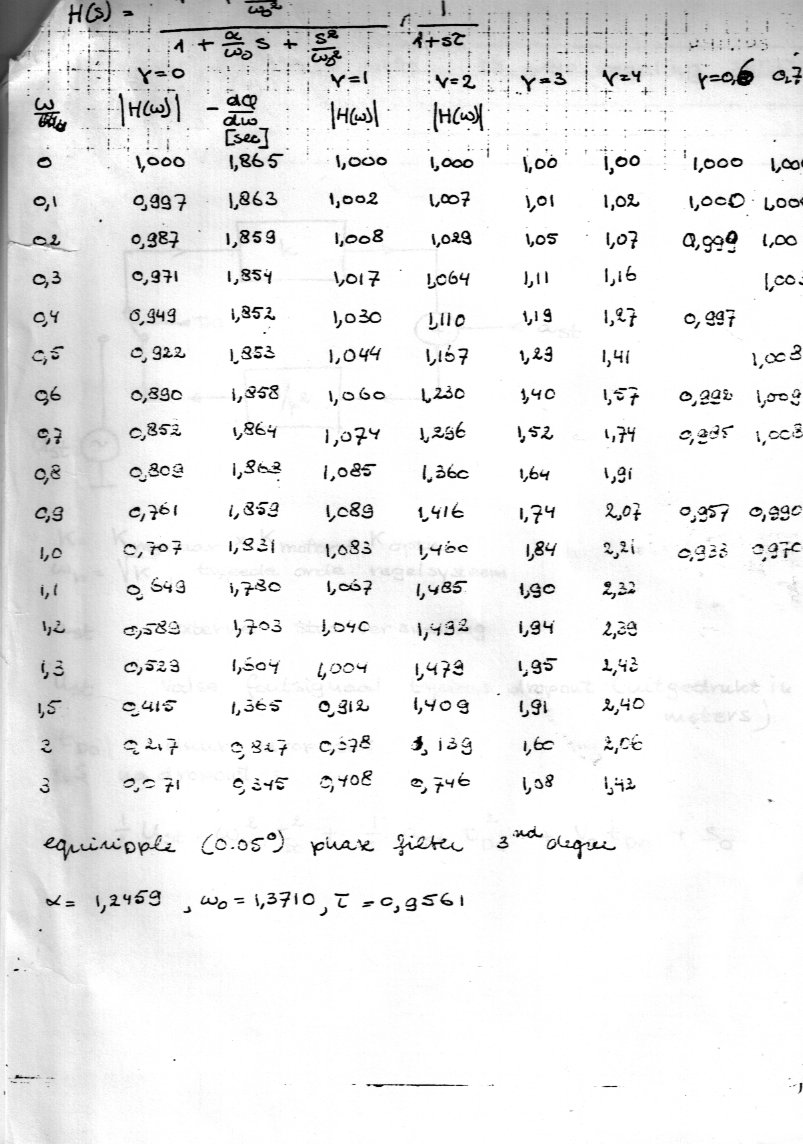 H(s) =
ω₀²
1 + α/ω₀ s + s²/ω₀² · 1/1+sτ
γ=0 γ=1 γ=2 γ=3 γ=4 γ=0,6 0,7
ω |H(ω)| - dφ/dω [sec] |H(ω)| |H(ω)|
0 1,000 1,865 1,000 1,000 1,00 1,00 1,000 1,00
0,1 0,997 1,863 1,002 1,007 1,01 1,02 1,000 1,00
0,2 0,987 1,859 1,008 1,029 1,05 1,07 0,999 1,00
0,3 0,971 1,854 1,017 1,064 1,11 1,16 1,00
0,4 0,949 1,852 1,030 1,110 1,19 1,27 0,997
0,5 0,922 1,853 1,044 1,167 1,29 1,41 1,008
0,6 0,890 1,858 1,060 1,230 1,40 1,57 0,992 1,009
0,7 0,852 1,864 1,074 1,296 1,52 1,74 0,985 1,008
0,8 0,809 1,868 1,085 1,360 1,64 1,91
0,9 0,761 1,859 1,089 1,416 1,74 2,07 0,957 0,990
1,0 0,707 1,831 1,083 1,460 1,84 2,21 0,933 0,970
1,1 0,649 1,780 1,067 1,485 1,90 2,32
1,2 0,589 1,703 1,040 1,492 1,94 2,39
1,3 0,529 1,604 1,004 1,479 1,95 2,43
1,5 0,415 1,365 0,912 1,409 1,91 2,40
2 0,217 0,827 0,678 1,139 1,60 2,06
3 0,071 0,345 0,408 0,746 1,08 1,42
equiripple (0.05°) phase filter 3nd degree
α = 1,2459 , ω₀ = 1,3710 , τ = 0,9561